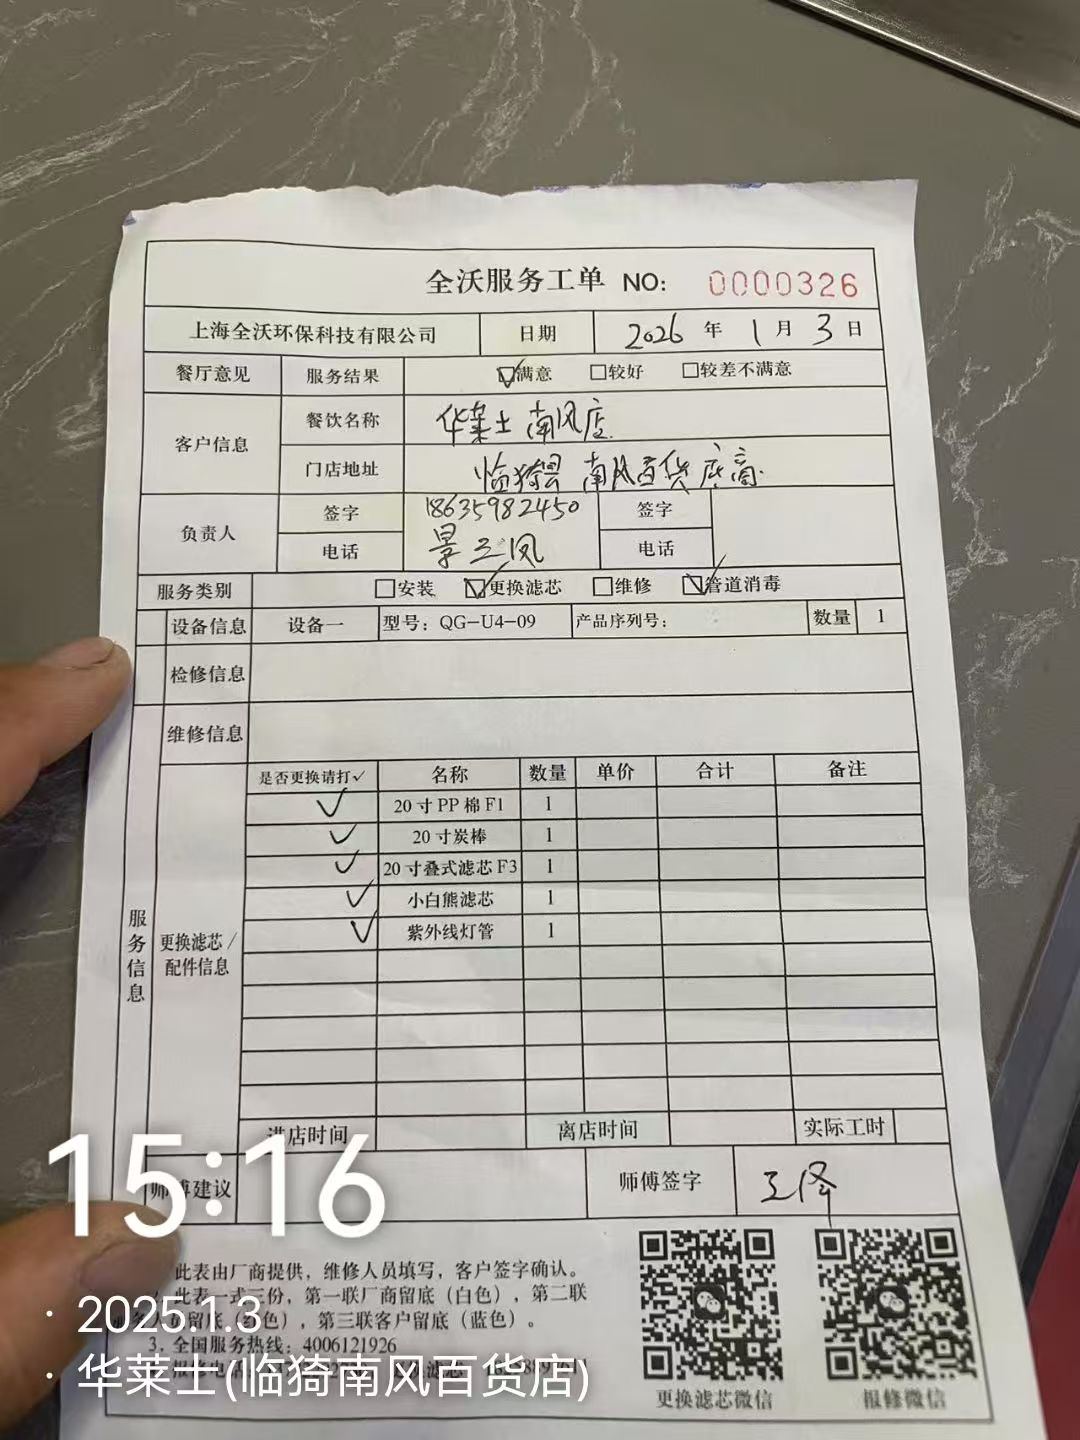 全沃服务工单 NO: 0000326
上海全沃环保科技有限公司 日期 2026 年 1 月 3 日
餐厅意见 服务结果 ☑满意 □较好 □较差不满意
客户信息 餐饮名称 华莱士 南风店
门店地址 临猗县 南风百货
负责人 签字 18635982450 签字
电话 景 凤 电话
服务类别 □安装 ☑更换滤芯 □维修 ☑管道消毒
设备信息 设备一 型号：QG-U4-09 产品序列号： 数量 1
检修信息
维修信息
服务信息
更换滤芯/配件信息
是否更换请打✓ 名称 数量 单价 合计 备注
✓ 20寸PP棉F1 1
✓ 20寸炭棒 1
✓ 20寸叠式滤芯F3 1
✓ 小白熊滤芯 1
✓ 紫外线灯管 1
进店时间 离店时间 实际工时
师傅建议 师傅签字 王泽
此表由厂商提供，维修人员填写，客户签字确认。
此表一式三份，第一联厂商留底（白色），第二联
留底（色），第三联客户留底（蓝色）。
3. 全国服务热线：4006121926
更换滤芯微信 报修微信
15:16
· 2025.1.3
· 华莱士(临猗南风百货店)